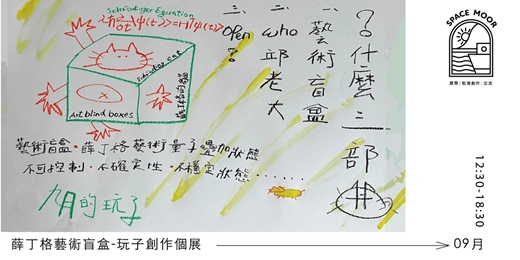 Schrodinger Equation
Schroding cat
Art blind boxes
?什麼三部
一 藝術盲盒
二 who 邱老大
三 Open ?
藝術盲盒・薛丁格藝術量子疊加狀態
不可控制・不確定性・不穩定狀態……
九月的玩子
SPACE MOOR
展售｜駐港創作｜交流
12:30-18:30
薛丁格藝術盲盒-玩子創作個展
09月